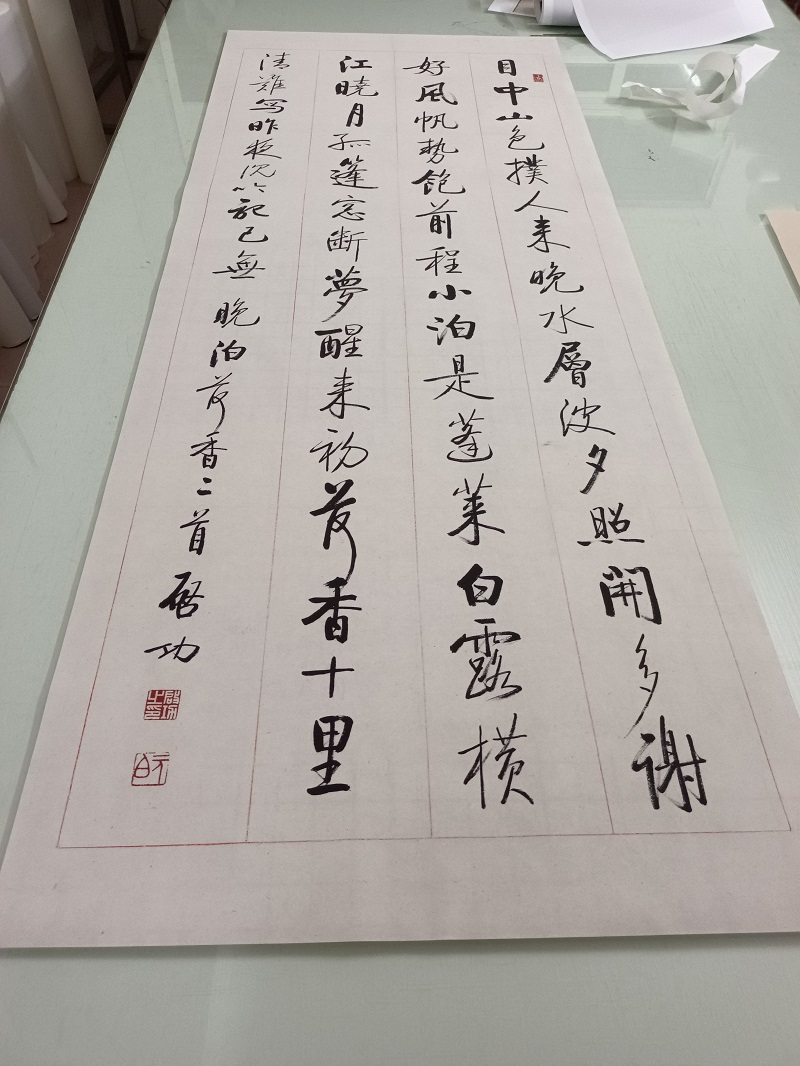 目中山色撲人来晚水層波夕照開多謝
好風帆勢飽前程小泊是蓬萊白露横
江曉月孤篷窓断夢醒来初荷香十里
清難寫昨夜沉吟記已無 晚泊荷香二首 啓功